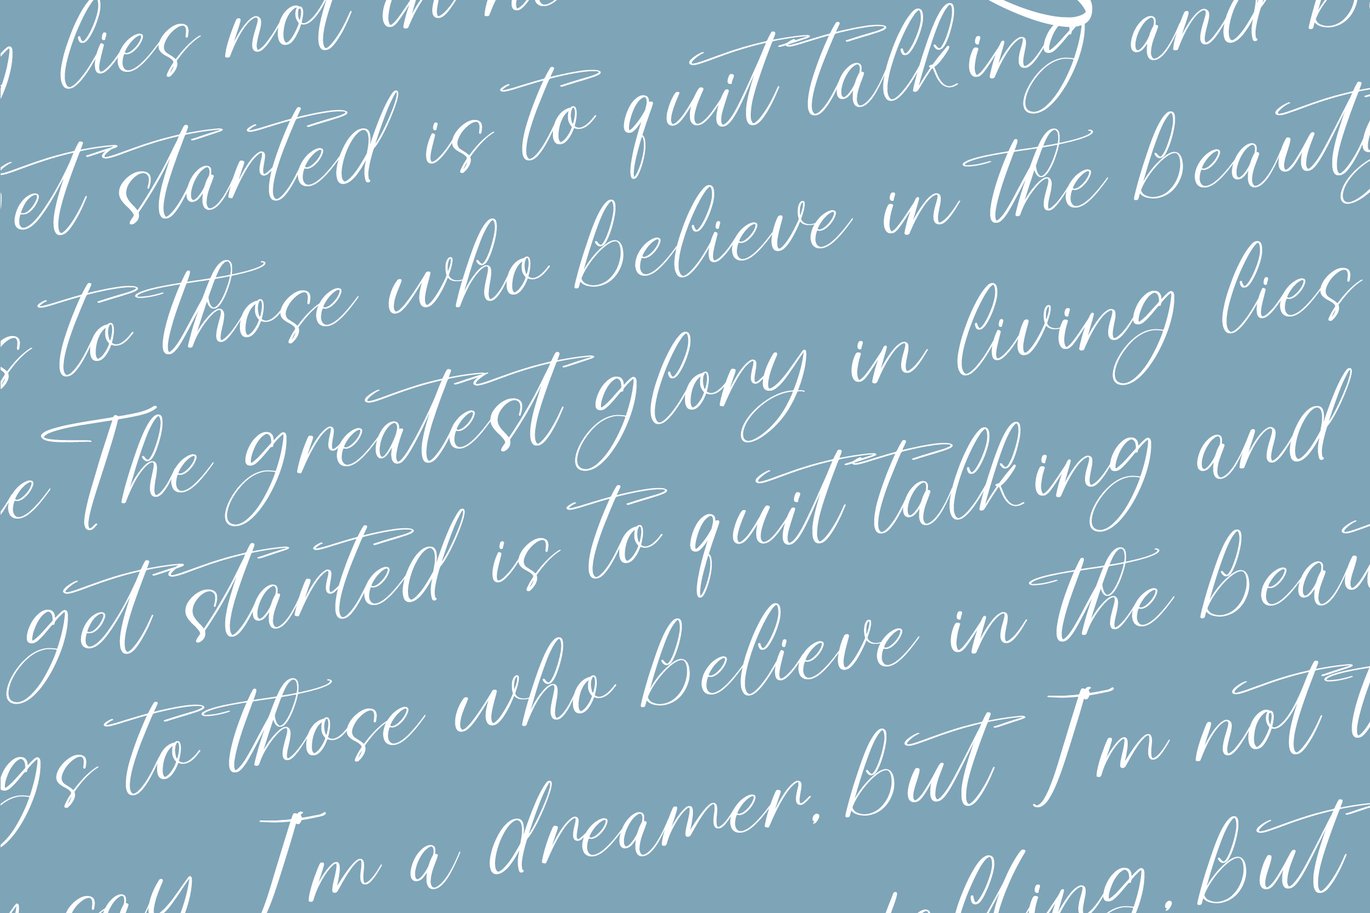 lies not in
et started is to quit talking and
to those who believe in the beauty
e The greatest glory in living lies
get started is to quit talking and
gs to those who believe in the beau
say I'm a dreamer, but I'm not
but